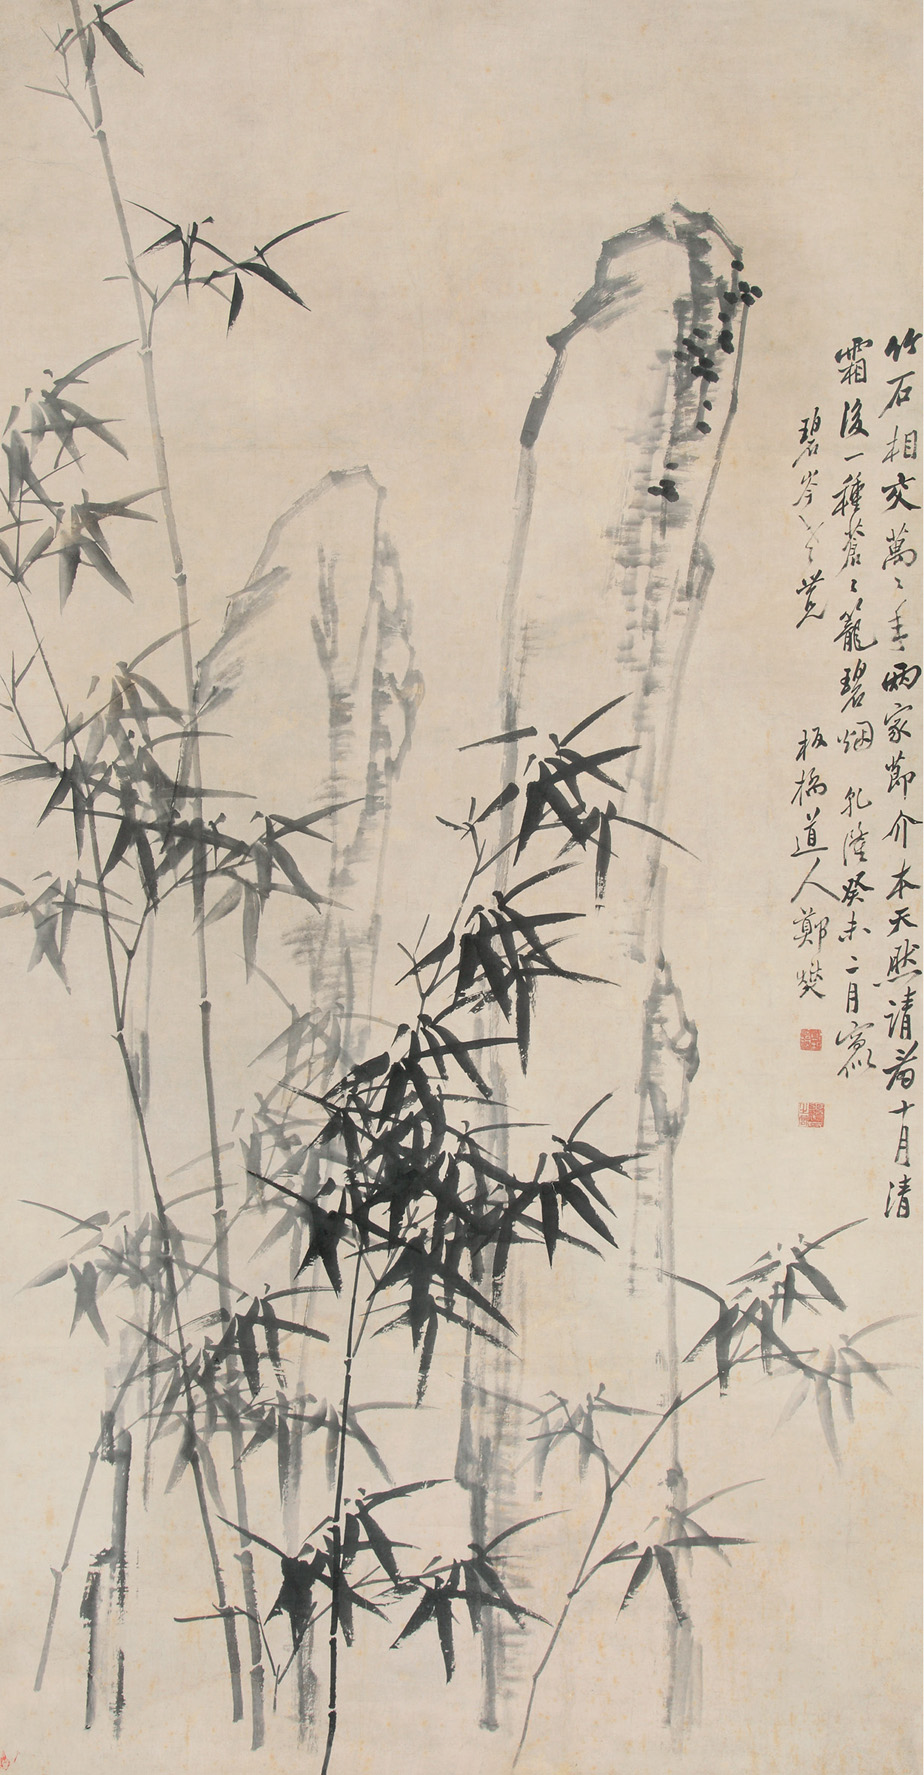 竹石相交萬〻年兩家節介本天然請看十月清
霜後一種蒼〻籠碧烟 乾隆癸未二月寫似
碧岑 覽 板橋道人鄭燮